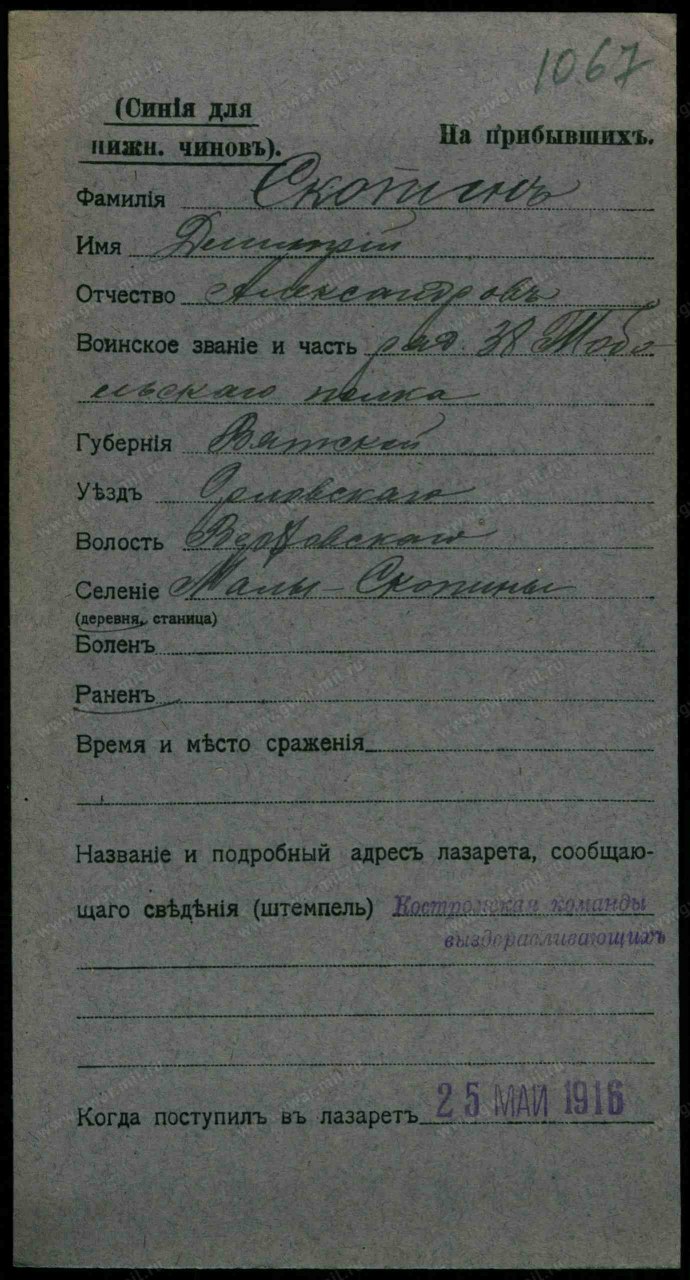 1067
(Синія для
нижн. чиновъ).
На прибывшихъ.
Фамилія Скопинъ
Имя Димитрій
Отчество Александровъ
Воинское званіе и часть ряд. 38 Тобо
льскаго полка
Губернія Вятской
Уѣздъ Орловскаго
Волость Верховскаго
Селеніе Малы-Скопины
(деревня, станица)
Боленъ
Раненъ
Время и мѣсто сраженія
Названіе и подробный адресъ лазарета, сообщаю-
щаго свѣдѣнія (штемпель) Костромская команды
выздоравливающихъ
Когда поступилъ въ лазаретъ 25 МАЙ 1916